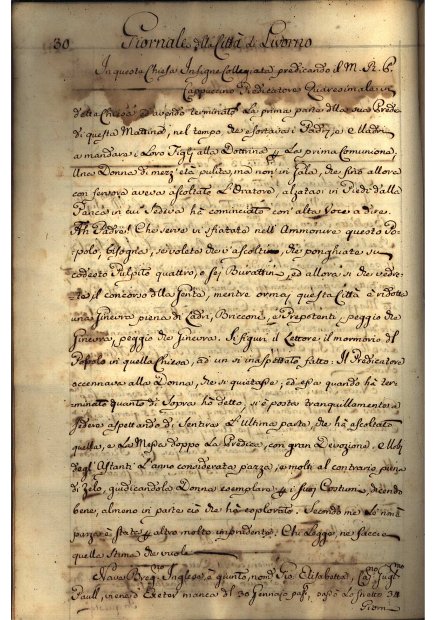 30 Giornale della Città di Livorno
In questa Chiesa Insigne Collegiata predicando il M. R. P.
Cappuccino Predicatore Quaresimale in
detta Chiesa, ed avendo terminato La prima parte della sua Predica
di questa Mattina, nel tempo, che esortava i Padri, e Madri
a mandare i Loro Figlj alla Dottrina La prima Comunione,
Una Donna di mezz'età pulita, ma non in Gala, che fino allora
con fervore aveva ascoltato L'Oratore, alzatasi in Piedi dalla
Panca in cui Sedeva ha cominciato con alta Voce a dire.
Ah Padre! Che serve vi sfiatate nell'Ammonire questo Po-
polo, bisogna, se volete che v'ascoltino, che ponghiate su
codesto Pulpito quattro, o sej Burattini, ed allora si che vedre-
te il concorso della Gente, mentre ormaj questa Città è ridotta
una Ginevra piena di Ladri, Bricconi, e Prepotenti, peggio che
Ginevra, peggio che Ginevra. Si figuri il Lettore il mormorio del
Popolo in quella Chiesa, ad un sì inaspettato fatto: Il Predicatore
accennava alla Donna, che si quietasse; ed essa quando ha ter-
minato quanto di Sopra ho detto, si è posta tranquillamente a
Sedere aspettando di Sentire L'Ultima parte, che ha ascoltato
quella, e La Messa doppo La Predica, con gran Devozione. Molti
degl'Astanti L'anno considerata pazza, e molti al contrario piena
di Zelo, giudicandola Donna esemplare i suoj Costumi, dicendo
bene, almeno in parte ciò che ha esplorato. Secondo me Se non è
pazza è stata altro molto imprudente. Chi Legge ne faccia
quella Stima che vuole.
Nave Inglese, è giunto, nom. Elisabetta, Cap.no
Paull, viene d'Exeter manca del 30 Gennajo pass.
Giorn